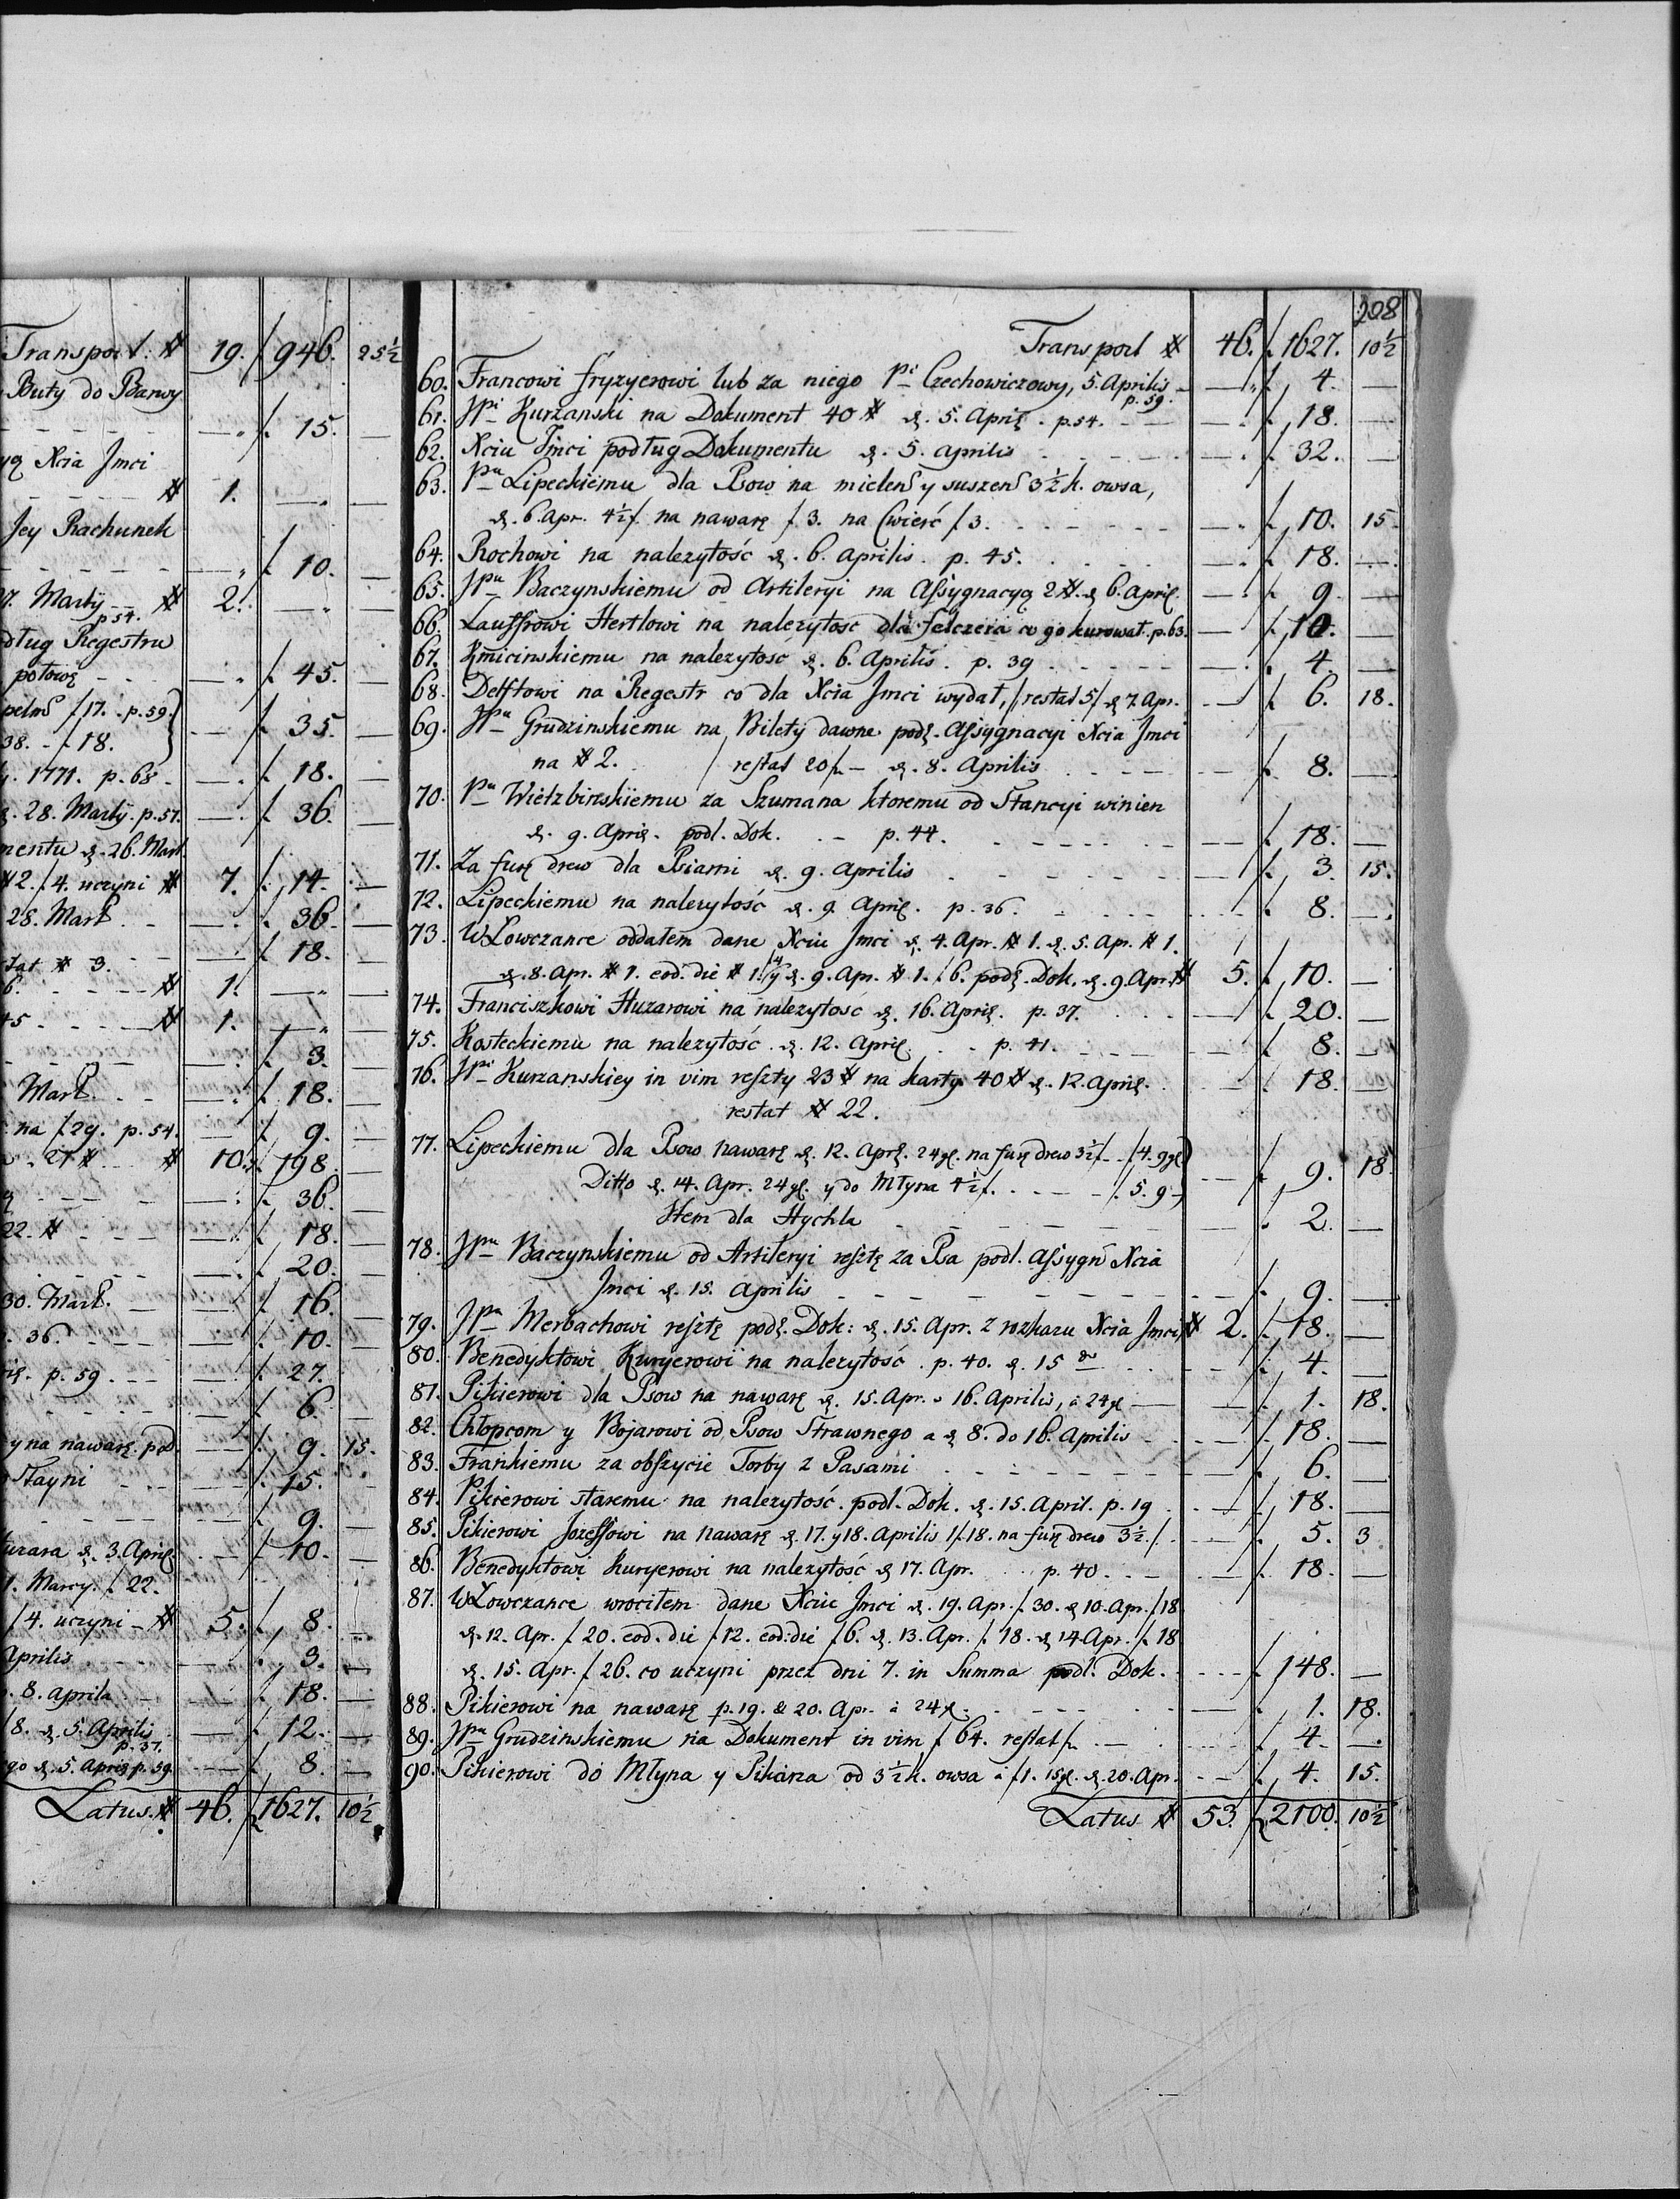 Transport: # 19. f. 946. 25½
Buty do Barwy
— . f. 15. —
Xcia Jmci
# 1. — . —
Jey Rachunek
— . f. 10. —
Marty — # 2. — . —
p 54.
dług Regestru
połowę — . f. 45. —
f 17. p. 59.
38. - f 18. f. 35. —
1771. p. 68 - — . f. 18. —
28. Marty. p. 57. — . f. 36. —
mentu d. 26. Mart.
# 2. f. 4. uczyni # 7. f. 14. —
28. Mart. — . f. 36. —
# 3. — f. 18. —
6. # 1. — . —
45 # 1. — . —
— f. 3. —
Mart. — . f. 18. —
na f. 29. p. 54. — f. 9. —
21 # # 10. f. 198. —
— . f. 36. —
22. # — . f. 18. —
— . f. 20. —
30. Mart. — . f. 16. —
36. — . f. 10. —
p. 59 — . f. 27.
— f. 6. —
y na nawarę. pod. — . f. 9. 15.
Stayni — . f. 15. —
f. 9. —
d. 3. April. — . f. 10. —
1. Marcy. f. 22.
f 4. uczyni — # 5. f. 8. —
Aprilis — . f. 3. —
8. aprila — . f. 18. —
f 8. d. 5. Aprilis — . f. 12. —
p. 37.
go d. 5. April p. 59. — . f. 8. —
Latus. # 46. f. 1627. 10½
208
Transport # 46. f. 1627. 10½
60. Francowi fryzyerowi lub za niego Pi Czechowiczowy, 5. Aprilis — — . f. 4. —
p. 59.
61. JPi Kurzanski na Dokument 40 # d. 5. April. p. 54. — . f. 18. —
62. Xciu Jmci podług Dokumentu d. 5. aprilis — . f. 32. —
63. Pu Lipeckiemu dla Psow na mielen y suszen 3½ k. owsa,
d. 6. Apr. 4½ f. na nawarę f 3. na Cwierć f 3. — . f. 10. 15
64. Rochowi na nalezytość d. 6. aprilis. p. 45. — . f. 18. —
65. JPu Baczynskiemu od Artileryi na Assygnacyą 2 #. d 6. April. — . f. 9. —
66. Lauffrowi Hertlowi na nalezytosc dla felczera co go kurował. p. 63. — f. 10. —
67. Kmicinskiemu na nalezytosc d. 6. Aprilis. p. 39 — . f. 4. —
68. Delftowi na Regestr co dla Xcia Jmci wydał, /restat 5/ d 7. Apr. — f. 6. 18.
69. JPu Grudzinskiemu na Bilety dawne podł. Assygnacyi Xcia Jmci
na # 2. / restat 20 f. — d. 8. Aprilis — f. 8. —
70. Pu Wietzbinskiemu za Szumana ktoremu od Stancyi winien
d. 9. April. podl. Dok. - p. 44. — f. 18. —
71. Za furę drew dla Psiarni d. 9. aprilis — f. 3. 15.
72. Lipeckiemu na nalezytość d. 9. April. p. 36. — f. 8. —
73. W Lowczance oddałem dane Xciu Jmci d. 4. Apr. # 1. d. 5. Apr. # 1.
d. 8. Apr. # 1. eod. die # 1. f 4 y d. 9. Apr. # 1. f 6. podł. Dok. d. 9. Apr. # 5. f. 10. —
74. Franciszkowi Huzarowi na nalezytość d. 16. April. p. 37. — f. 20. —
75. Kosteckiemu na nalezytość. d. 12. April. p. 41. — f. 8. —
76. JPi Kurzanskiey in vim reszty 23 # na karty 40 # d. 12. April. — f. 18. —
restat # 22.
77. Lipeckiemu dla Psow nawarę d. 12. Aprl. 24 gl. na furę drew 3½ f. - f 4. 9 gl
Ditto d. 14. Apr. 24 gl. y do Młyna 4½ f. — f. 5. 9 — f. 9. 18
Item dla Hychla — f. 2. —
78. JPu Baczynskiemu od Artileryi resztę za Psa podl. Assygn Xcia
Jmci d. 15. Aprilis — f. 9. —
79. JPu Merbachowi resztę podł. Dok: d. 15. Apr. z rozkazu Xcia Jmci # 2. f. 18. —
80. Benedyktowi Kuryerowi na nalezytość. p. 40. d. 15 — f. 4. —
81. Pikierowi dla Psow na nawarę d. 15. Apr. 16. Aprilis, à 24 gl — f. 1. 18.
82. Chłopcom y Bojarowi od Psow Strawnego a d 8. do 16. Aprilis — f. 18. —
83. Frankiemu za obszycie Torby z Pasami — f. 6. —
84. Pikierowi staremu na nalezytość. podl. Dok. d. 15. April. p. 19 — f. 18. —
85. Pikierowi Jozeffowi na nawarę d. 17. y 18. Aprilis 1 f. 18. na furę drew 3½ f. — f. 5. 3
86. Benedyktowi Kuryerowi na nalezytość d 17. Apr. p. 40. — f. 18. —
87. W Lowczance wrociłem dane Xciu Jmci d. 19. Apr. f 30. d 10. Apr. f 18
d. 12. Apr. f 20. eod. die f 12. eod: die f 6. d. 13. Apr. f. 18. d 14 Apr. f. 18
d. 15. Apr. f 26. co uczyni przez dni 7. in Summa podl. Dok. — f. 148. —
88. Pikierowi na nawarę p. 19. & 20. Apr. à 24 gl. — f. 1. 18.
89. JPu Grudzinskiemu na Dokument in vim f 64. restat f. — f. 4. —
90. Pikierowi do Młyna y Pikarza od 3½ k. owsa à f 1. 15 gl. d. 20. Apr. — f. 4. 15.
Latus # 53. f. 2100. 10½